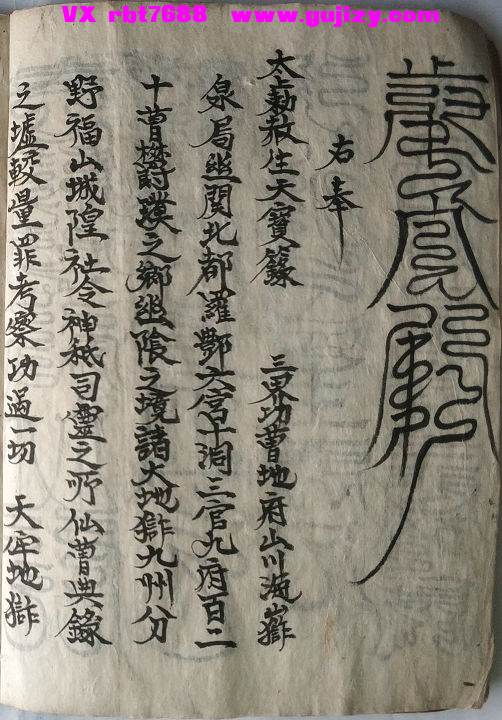 VX rbt7688 www.gujizy.com
右奉
太上勅赦生天寶籙 三界功曹地府山川海嶽
泉扃幽関北都羅酆六宮十洞三官九府百二
十曹欝璞之鄉幽陰之境諸大地獄九州分
野福山城隍社令神祇司靈之所仙曹典錄
之墟較量罪考察功過一切 天牢地獄